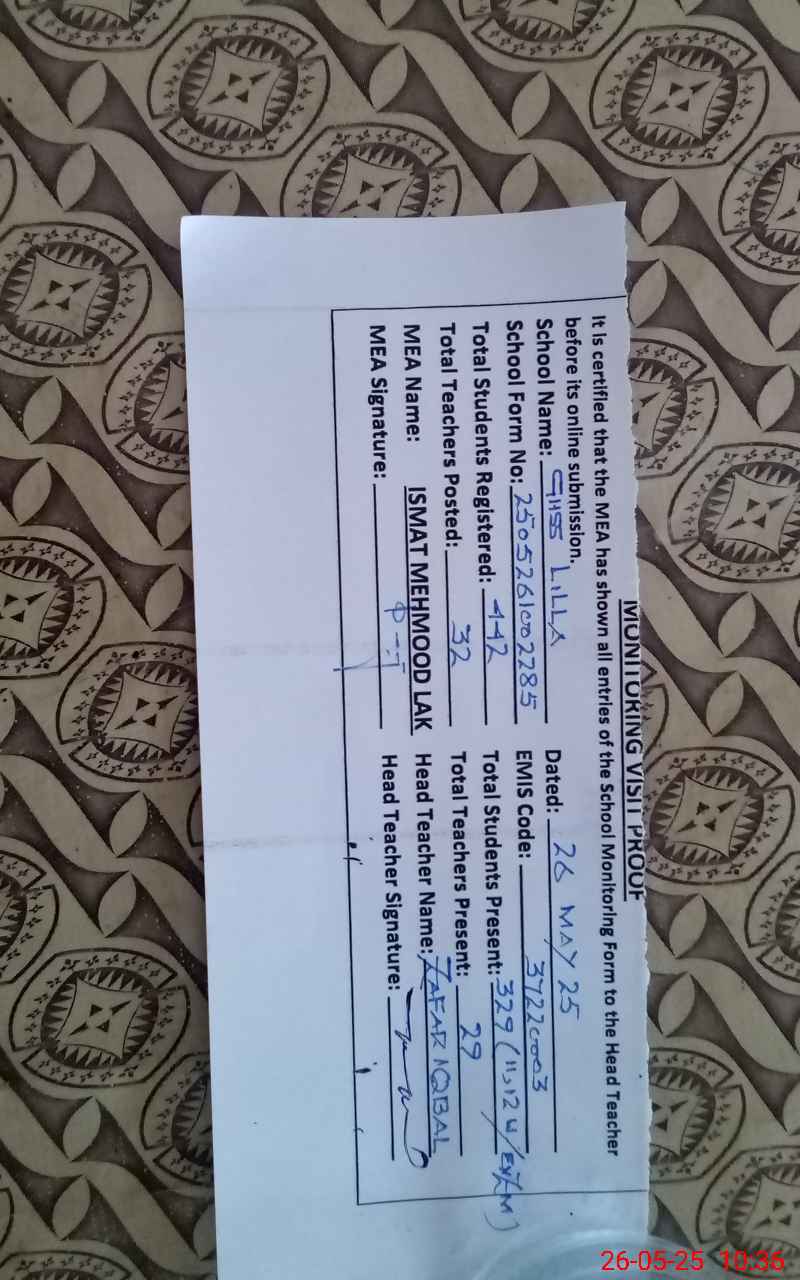 MONITORING VISIT PROOF
It is certified that the MEA has shown all entries of the School Monitoring Form to the Head Teacher
before its online submission.
School Name: GHSS LILLA Dated: 26 MAY 25
School Form No: 2505261002285 EMIS Code: 37220003
Total Students Registered: 442 Total Students Present: 329 (11,12 w/EXAM)
Total Teachers Posted: 32 Total Teachers Present: 29
MEA Name: ISMAT MEHMOOD LAK Head Teacher Name: ZAFAR IQBAL
MEA Signature: Head Teacher Signature:
26-05-25 10:36